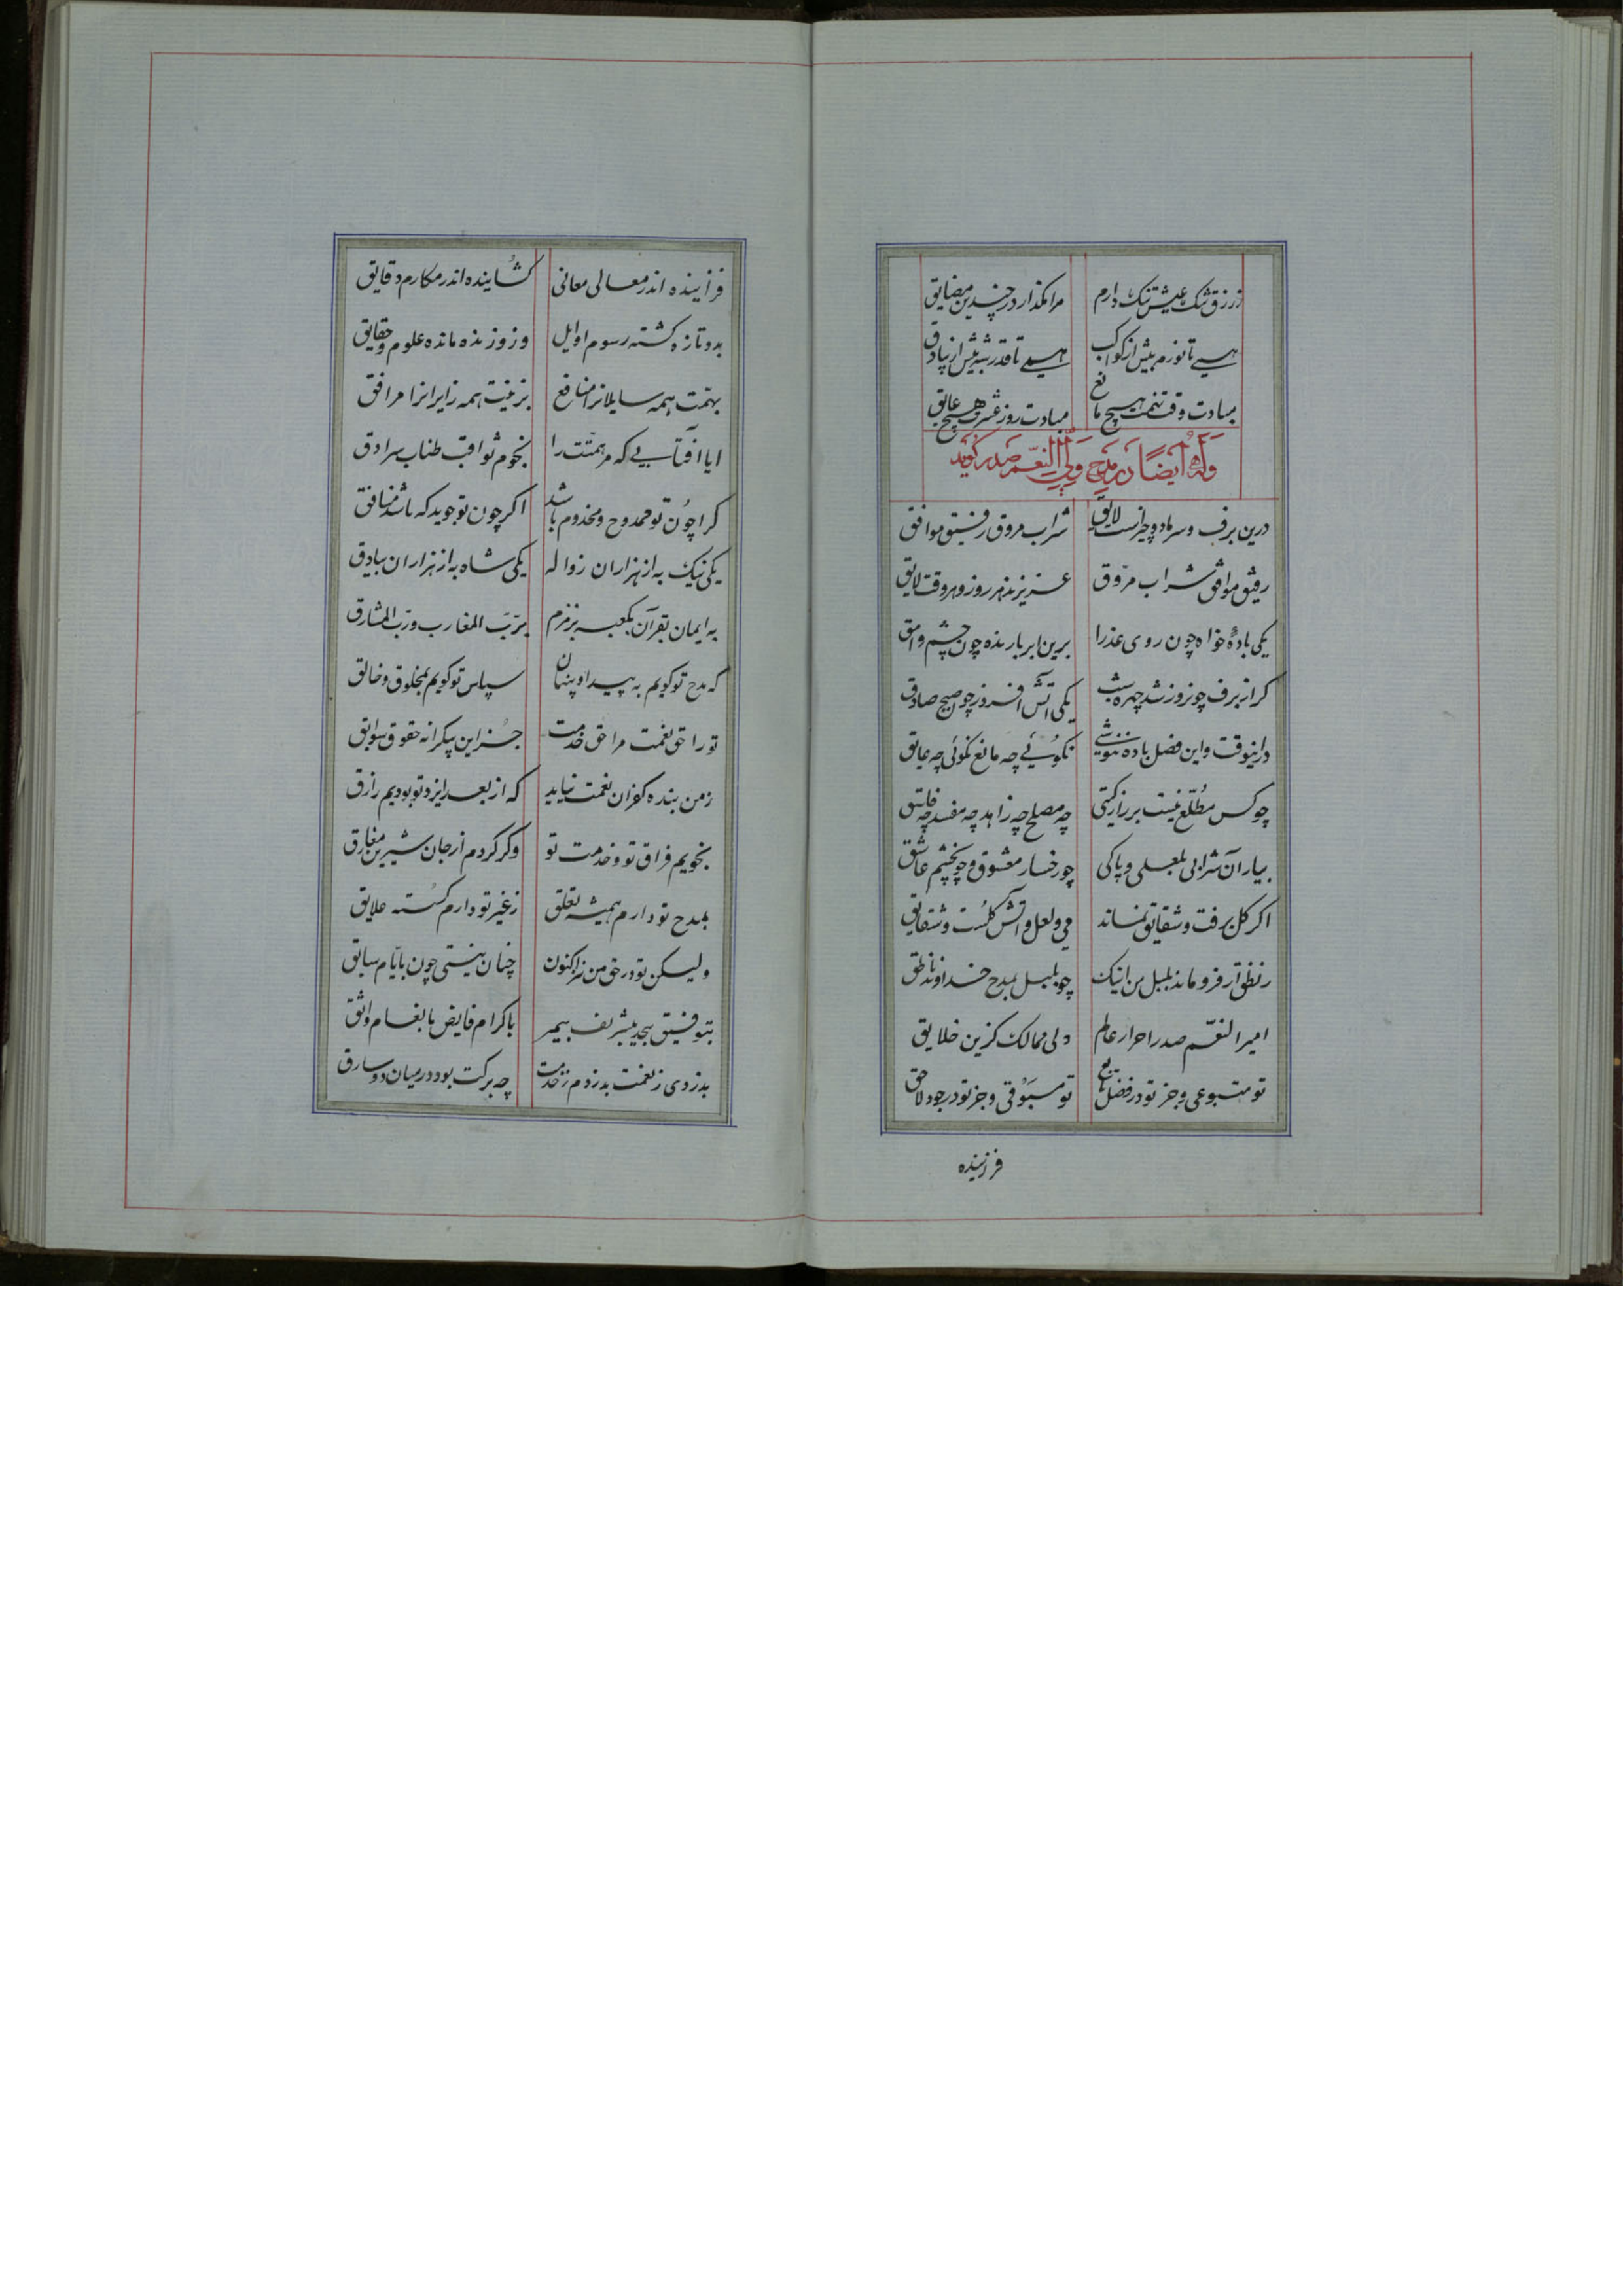 ز رزق تنک عیش تنک دارم مرا مکذار در چندین مضایق
همی تا نورم بیش از کواکب همی تا قدر شه بیش از بیادق
مبادت وقت تنعم هیچ مانع مبادت روز عشرت هیچ عایق
وله ایضاً در مدح ولی النعم صدر کوید
درین برف و سرما دو چیز است لایق شراب مروق رفیق موافق
رفیق موافق شراب مروّق عزیزند هر روز و هر وقت لایق
یکی بادهٔ خواه چون روی عذرا برین ابر بارنده چون چشم وامق
کر از برف چو نروز شد چهره شب یکی آتش افروز چو صبح صادق
در اینوقت و این فصل باده ننوشی نکوئی چه مانع نکوئی چه عایق
چو کس مُطّلع نیست بر راز کیتی چه مصلح چه زاهد چه مفسد چه فاسق
بیار آن شرابی بلعلی و پاکی چو رخسار معشوق و چو نچشم عاشق
اکر کل برفت و شقایق نماند می و لعل و آتش کلست و شقایق
ز نطق ار فرو ماند بلبل من اینک چو بلبل بمدح خداوند ناطق
امیر النعّم صدر احرار عالم ولی ممالک کزین خلایق
تو متبوعی و جز تو در فضل تابع تو مسبوقی و جز تو در جود لاحق
فرزینده
فزاینده اندر معالی معانی کشاینده اندر مکارم دقایق
بدو تازه کشته رسوم اوایل وزو زنده مانده علوم و حقایق
بهمّت همه سایلانرا منافع بزینت همه زایرانرا مرافق
ایا آفتابی که مر همّتت را نجوم ثواقب طناب سرادق
کرا چون تو ممدوح و مخدوم باشد اکر چون تو جوید که باشد منافق
یکی نیک به از هزاران زواله یکی شاه به از هزاران بیادق
به ایمان بقرآن بکعبه بزمزم بربّ المغارب وربّ المشارق
که مدح تو کویم به پیدا و پنهان سپاس تو کویم بمخلوق و خالق
تو را حق نعمت مرا حق خدمت جز این بیکرانه حقوق سوابق
ز من بنده کفران نعمت نیاید که از بعد ایزد تو بودیم رازق
نجویم فراق تو و خدمت تو وکر کردم از جان شیرین مفارق
بمدح تو دارم همیشه تعلق ز غیر تو دارم کسسته علایق
ولیکن تو در حق من بنده اکنون چنان نیستی چون بایّام سابق
بتوفیق بیحد بتشریف بیمر باکرام فایض بانعام واثق
بدزدی ز نعمت بدزدم ز خدمت چه برکت بود در میان دو سارق